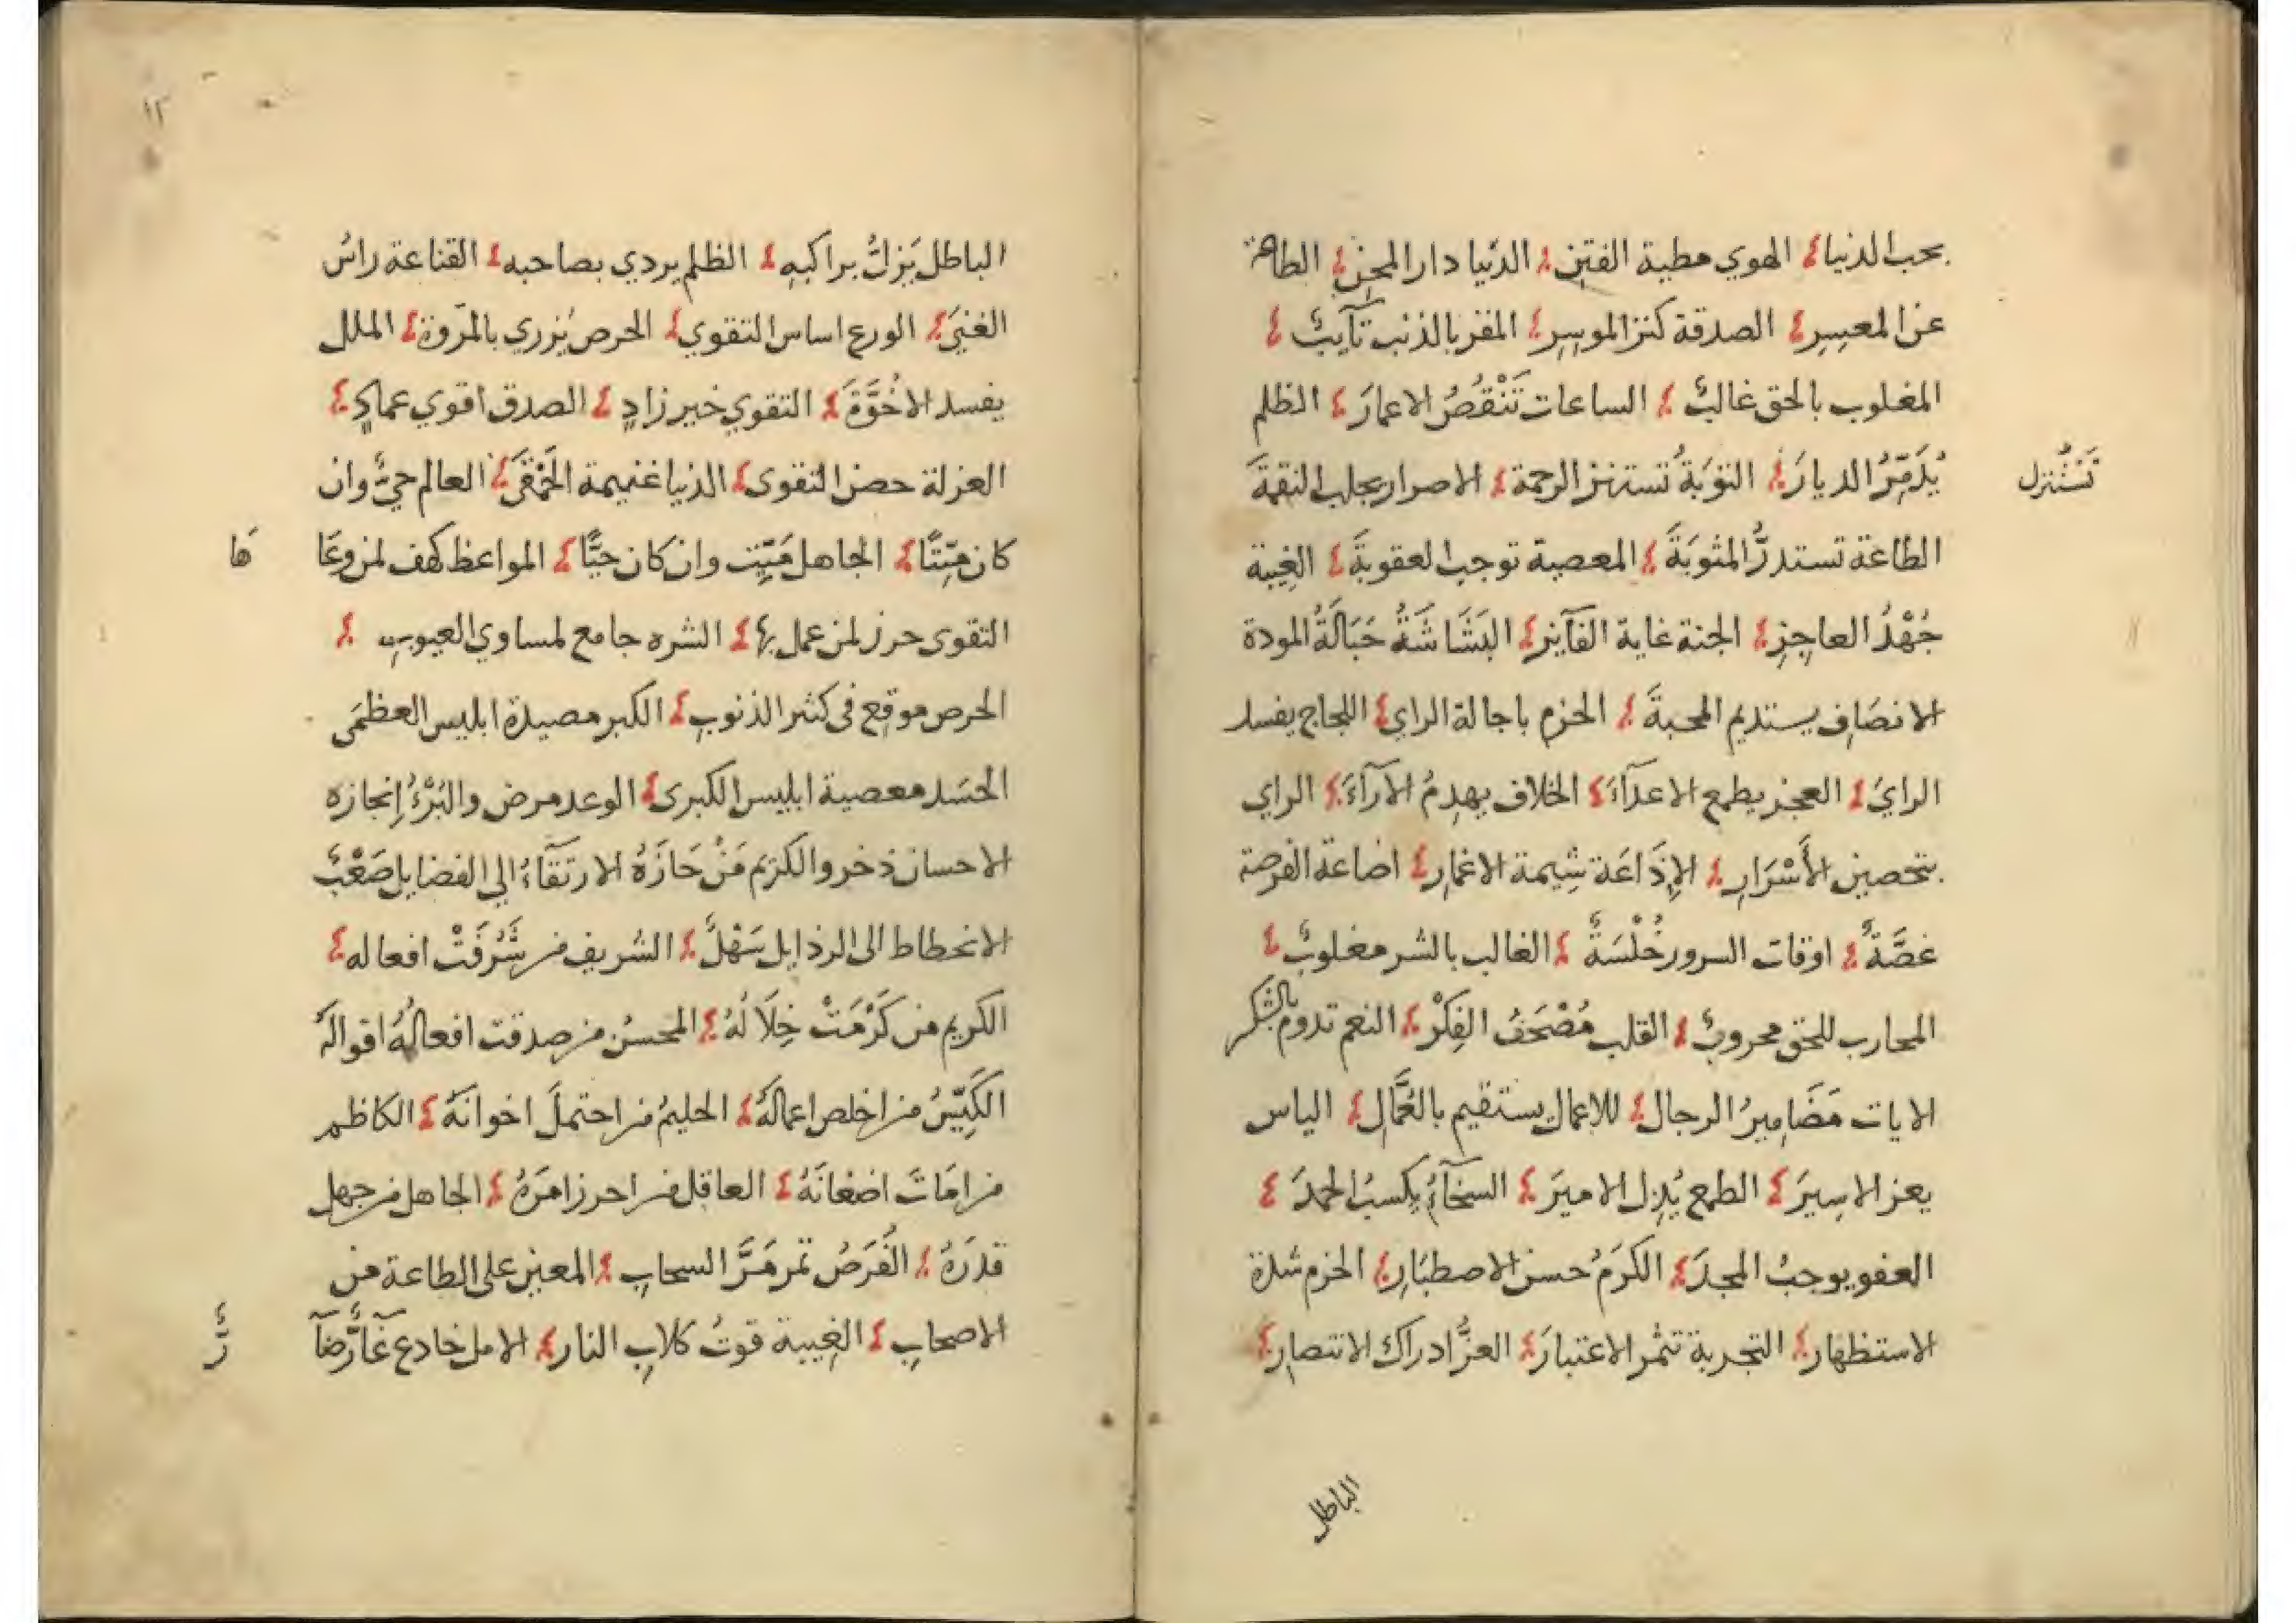 بحب الدنيا الهوي مطية الفتن الدنيا دار المحن الطاعة
عز المعسر الصدقة كنز الموسر المقر بالذنب تآيب
المغلوب بالحق غالب الساعات تَنْقُصُ الاعمارَ الظلم
يُدَمِّرُ الديارَ التوبَةُ تستنزل الرحمة الاصرار يجلب النقمةَ
تَسْتَنْزِل
الطاعة تستدرُّ المثوبَةَ المعصية توجب العقوبةَ الغِيبة
جُهْدُ العاجِزِ الجنة غاية الفآيز البَشَاشَةُ حَبَالَةُ المودة
الانصَاف يستديم المحبةَ الحزم باجالة الراي اللجاج يفسد
الرايَ العجز يطمع الاعدآءَ الخلاف يهدِمُ الآرآءَ الراي
بتحصين الأَسْرَارِ الإِذَاعَة شِيمة الاغمارِ اضاعة الفرصة
غصَّةٌ اوقات السرور خُلْسَةٌ الغالب بالشر مغلوبٌ
المحارب للحق محروبٌ القلب مُصْحَفُ الفِكْرْ النعم تدوم بالشكر
الايات مَضَامِيرُ الرجال للاعمال يستقيم بالعُمَّالِ الياس
يعز الاسِيرَ الطمع يُذِل الاميرَ السخآءُ يكسبُ الحمدَ
العفو يوجبُ المجدَ الكرَمُ حسن الاصطبَارِ الحزم شدة
الاستظهارِ التجربة تثمر الاعتبارَ العزُّ ادراك الانتصارِ
الباطل
١٢
الباطل يَزِلُّ براكبِهِ الظلم يردي بصاحبه القناعة راسُ
الغنيَ الورع اساس التقوي الحرص يُزري بالمرّوة الملل
يفسد الاخُوَّةَ التقوي خير زادٍ الصدق اقوي عمادٍ
العزلة حصن التقوى الدنيا غنيمة الحَمْقَى العالم حيٌّ وان
كان ميِّتًا الجاهل مَيِّت وان كان حيًّا المواعظ كهف لمن وعَا
هَا
التقوى حرز لمن عمل بها الشره جامع لمساوي العيوبِ
الحرص موقِع فى كثير الذنوبِ الكبر مصيدة ابليس العظمَى
الحسَد معصية ابليس الكبرى الوعد مرض والبُرْءُ إِنجازه
الاحسان ذخر والكريم مَنْ حَازَهُ الارتقَآءُ الي الفضايل صَعْبٌ
الانحطاط الى الرذايل سَهْلٌ الشريف من شَرُفَتْ افعاله
الكريم من كَرُمَتْ خِلَالُهُ المحسنُ من صدقت افعالُهُ اقوالَهُ
الكَيِّسُ من اخلص اعمالَهُ الحليمُ من احتملَ اخوانَهُ الكاظم
من امَاتَ اضغانَهُ العاقل من احرز امرَهُ الجاهل من جهل
قدرَهُ الفُرَصُ تمر مَرَّ السحابِ المعين على الطاعة من
الاصحابِ الغِيبة قوتُ كلابِ النار الامل خادع غآرٌّ ضآ
رٌّ